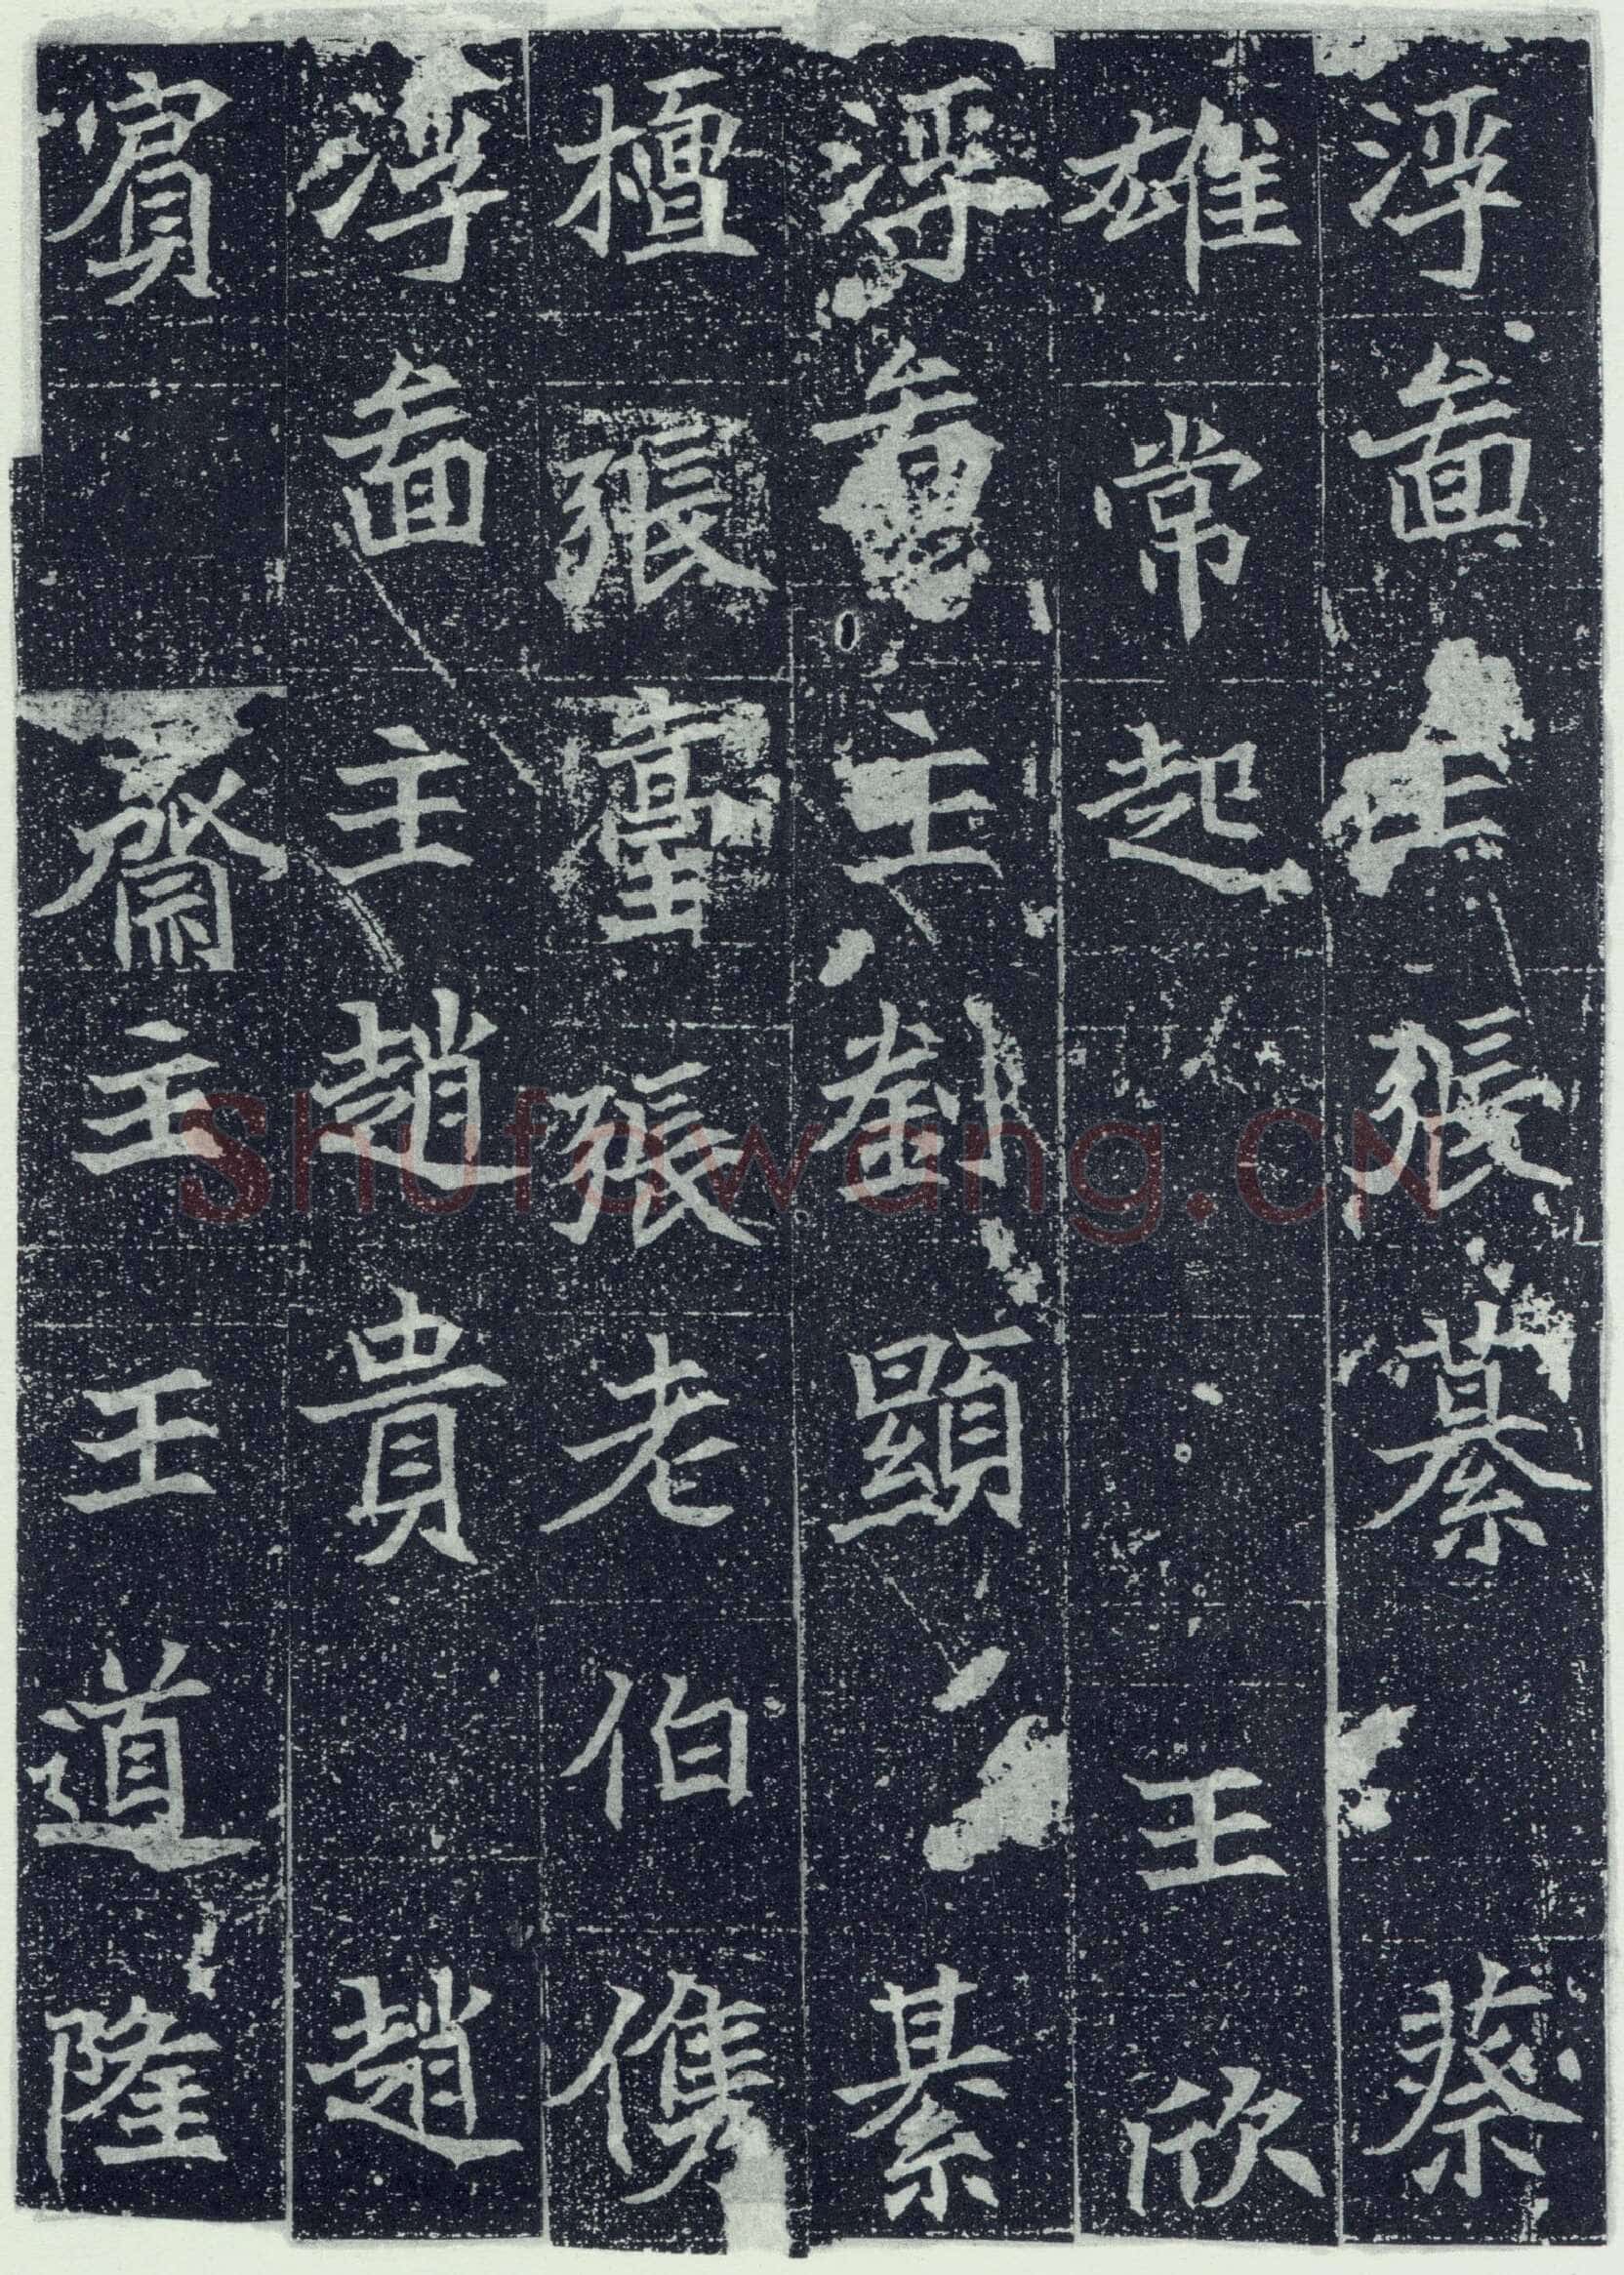 浮啚主張 蔡
雄 常起 王欣
浮啚主劉顯 綦
檀 張臺 張老 伯儁
浮啚主趙貴 趙
賓 齋主王道隆
Shufawang.CN